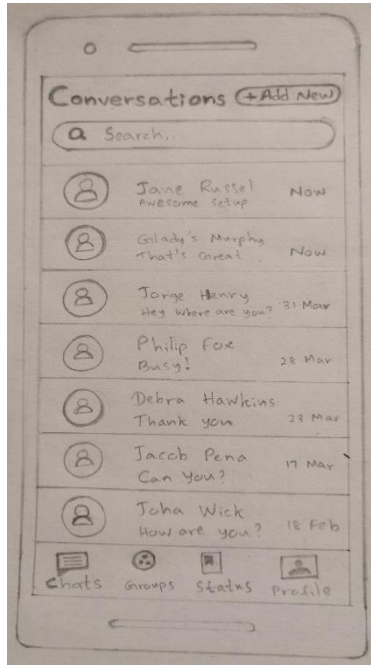 Conversations +Add New
Search..
Jane Russel
Awesome setup
Now
Glady's Murphy
That's Great.
Now
Jorge Henry
Hey where are you?
31 Mar
Philip Fox
Busy!
28 Mar
Debra Hawkins
Thank you
23 Mar
Jacob Pena
Can You?
17 Mar
Joha Wick
How are you?
18 Feb
Chats Groups Status Profile